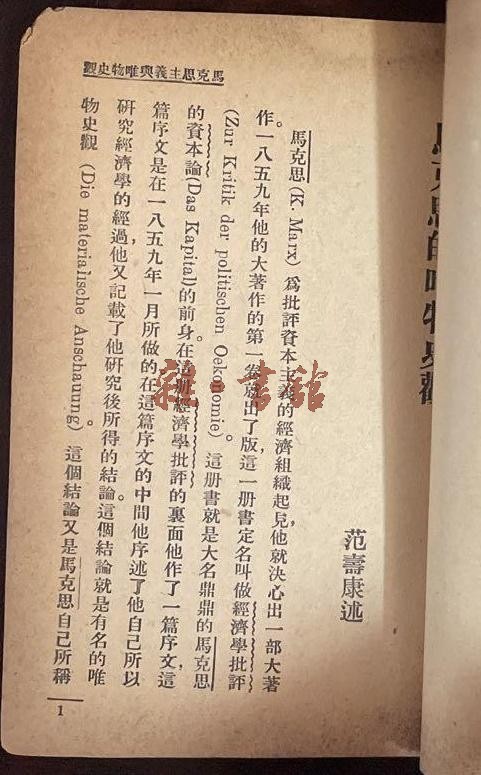 馬克思主義與唯物史觀
馬克思的唯物史觀
范壽康述
馬克思(K. Marx) 爲批評資本主義的經濟組織起見,他就決心出一部大著
作。一八五九年他的大著作的第一卷就出了版,這一册書定名叫做經濟學批評
(Zur Kritik der politischen Oekonomie)。這册書就是大名鼎鼎的馬克思
的資本論(Das Kapital)的前身。在這册經濟學批評的裏面他作了一篇序文,這
篇序文是在一八五九年一月所做的。在這篇序文的中間他序述了他自己所以
研究經濟學的經過,他又記載了他研究後所得的結論。這個結論就是有名的唯
物史觀 (Die materialische Anschauung)。這個結論又是馬克思自己所稱
1
書舘